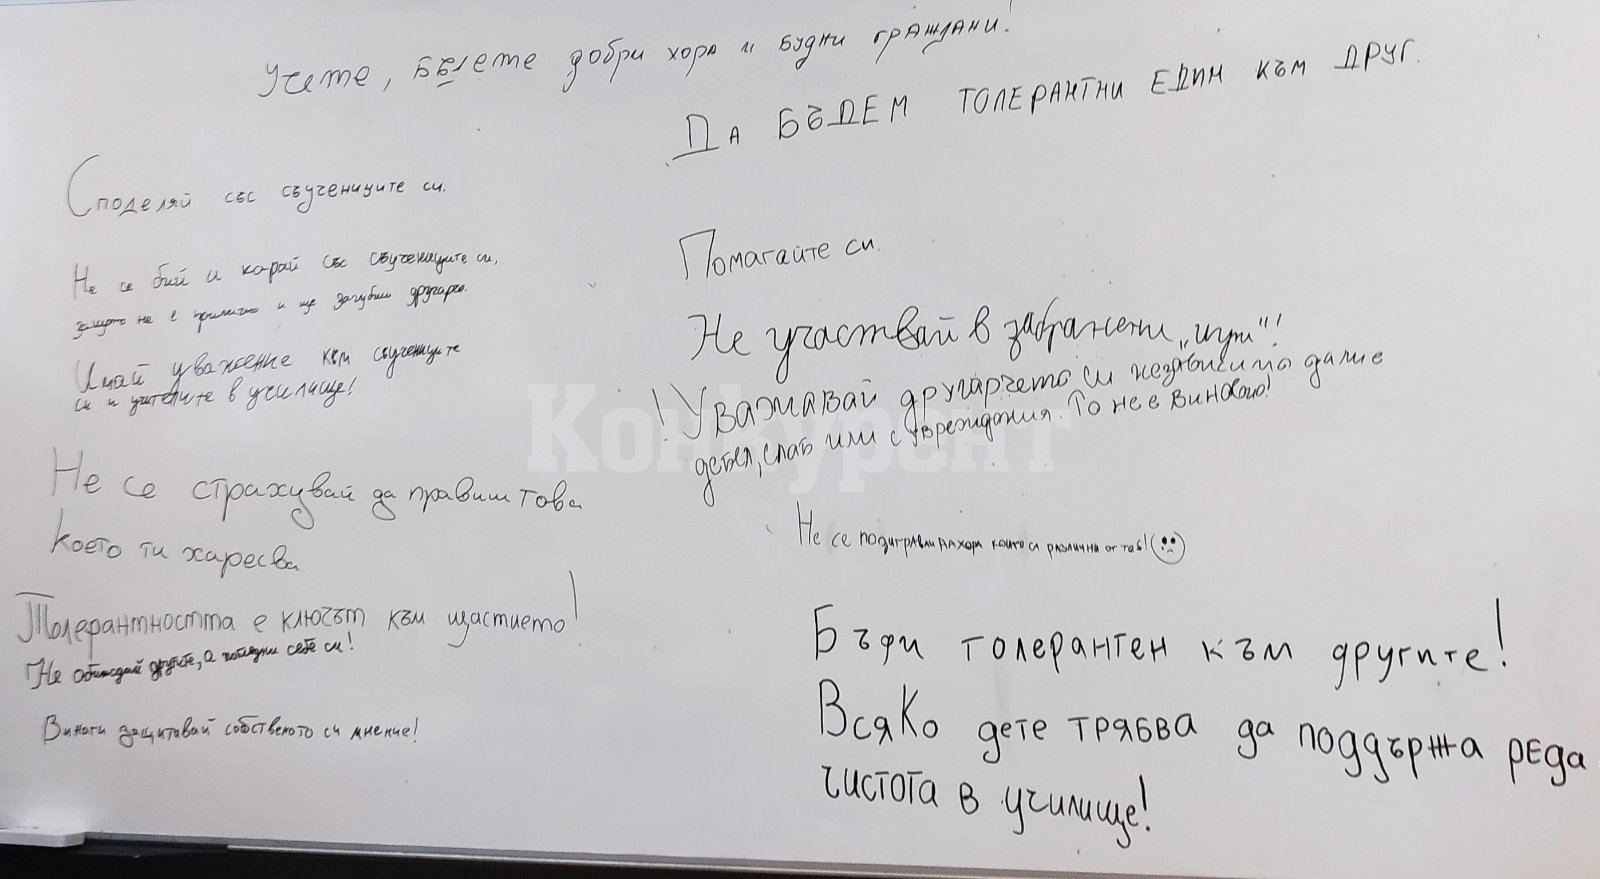 Учете, бъдете добри хора и будни граждани!
Да БЪДЕМ ТОЛЕРАНТНИ ЕДИН КЪМ ДРУГ.
Споделяй със съучениците си.
Не се бий и карай със съучениците си,
защото не е прилично и ще загубиш другарче.
Имай уважение към съучениците
си и учителите в училище!
Не се страхувай да правиш това
което ти харесва
Толерантността е ключът към щастието!
Не обиждай другите, а погледни себе си!
Винаги защитавай собственото си мнение!
Помагайте си.
Не участвай в забранени „игри"!
! Уважавай другарчето си независимо дали е
дебел, слаб или с увреждания. То не е виновно!
Не се подигравай на хора които са различни от теб! :(
Бъди толерантен към другите!
Всяко дете трябва да поддържа реда
чистота в училище!
Конкурент